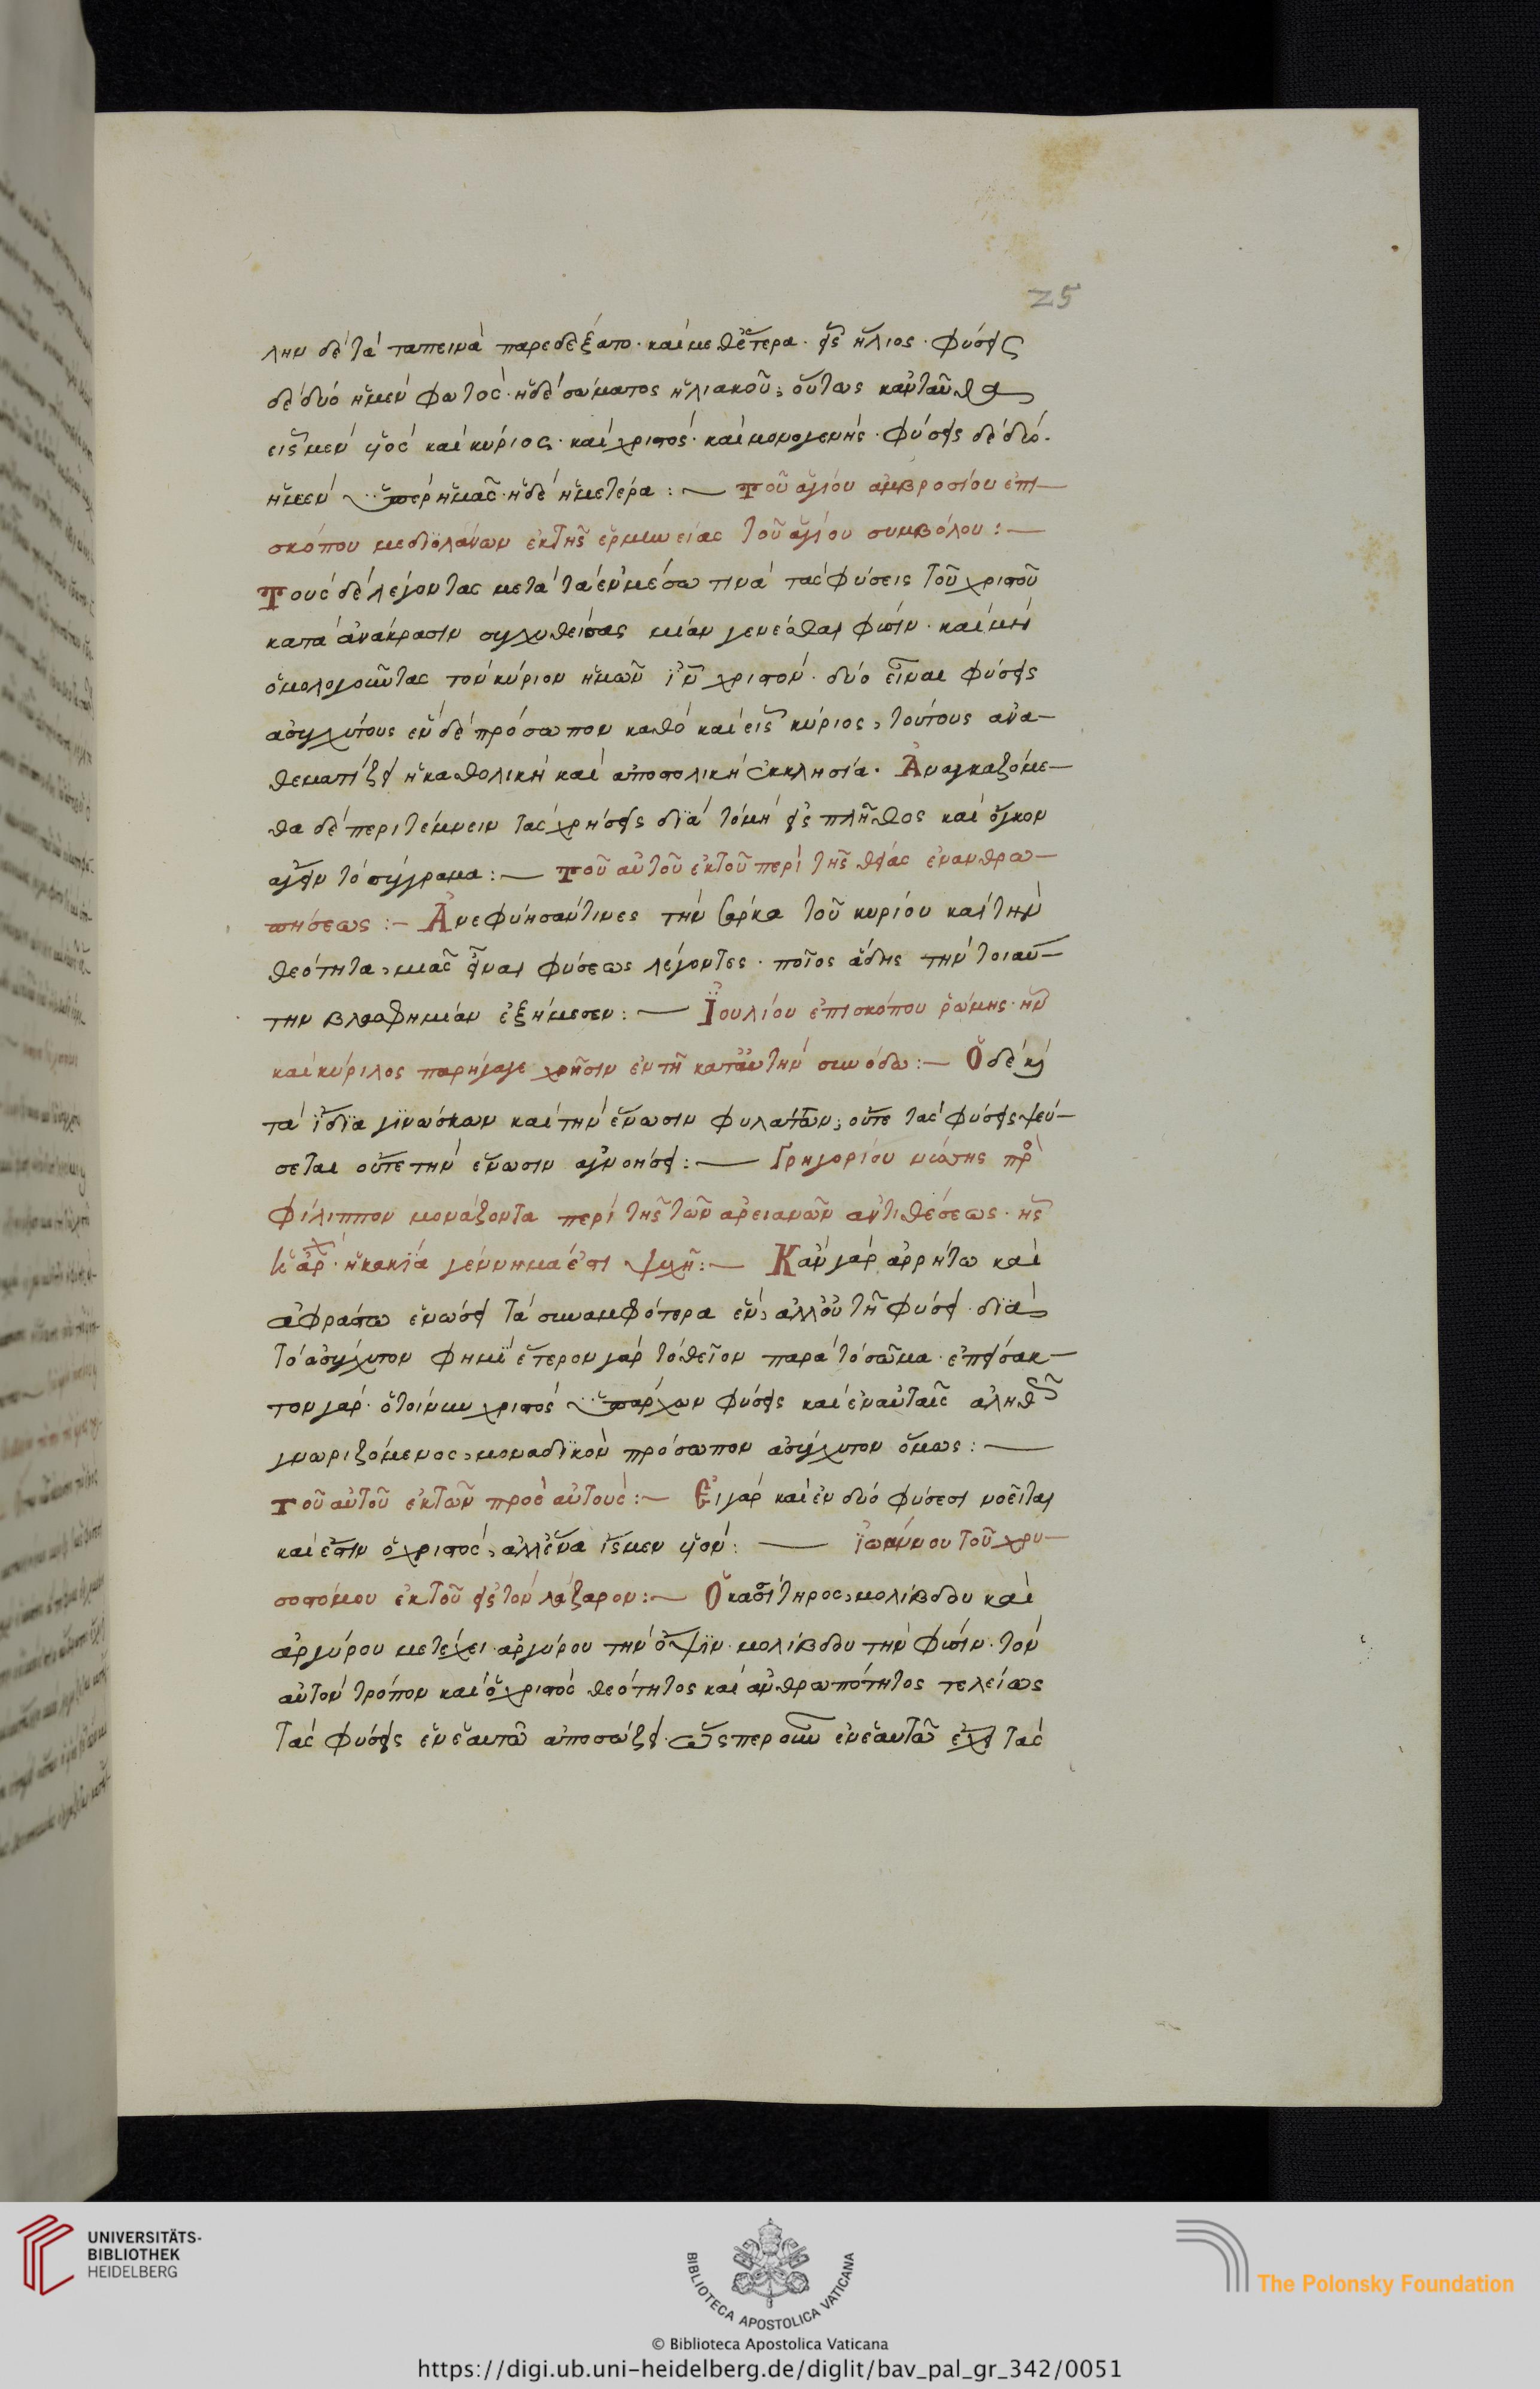 25
λην δὲ τὰ ταπεινὰ παρεδέξατο· καὶ μεθ' ἕτερα· εἷς ἥλιος· φύσεις
δὲ δύο ἡ μὲν φωτὸς· ἡ δὲ σώματος ἡλιακοῦ, οὕτως κἀνταῦθα
εἷς μὲν υἱὸς καὶ κύριος· καὶ χριστὸς· καὶ μονογενής· φύσεις δὲ δύο·
ἡ μὲν ὑπὲρ ἡμᾶς· ἡ δὲ ἡμετέρα :— τοῦ ἁγίου ἀμβροσίου ἐπι—
σκόπου μεδϊολάνων ἐκ τῆς ἑρμηνείας τοῦ ἁγίου συμβόλου :—
Τοὺς δὲ λέγοντας μετὰ τὰ ἐν μέσω τινὰ τὰς φύσεις τοῦ χριστοῦ
κατὰ ἀνάκρασιν συγχυθείσας μίαν γενέσθαι φύσιν· καὶ μὴ
ὁμολογοῦντας τὸν κύριον ἡμῶν ἰν χριστὸν· δύο εἶναι φύσεις
ἀσυγχύτους ἐν δὲ πρόσωπον καθὸ καὶ εἷς κύριος, τούτους ἀνα—
θεματίζει ἡ καθολικὴ καὶ ἀποστολικὴ ἐκκλησία. Ἀναγκαζόμε—
θα δὲ περιτέμνειν τὰς χρήσεις διὰ τὸ μὴ εἰς πλῆθος καὶ ὄγκον
ἄγειν τὸ σύγραμα :— τοῦ αὐτοῦ ἐκ τοῦ περὶ τῆς θείας ἐνανθρω—
πήσεως :— Ἀνεφύησαν τινες τὴν σάρκα τοῦ κυρίου καὶ τὴν
θεότητα, μιᾶς εἶναι φύσεως λέγοντες· ποῖος ἅδης τὴν τοιαύ—
την βλασφημίαν ἐξήμεσεν :— Ἰουλίου ἐπισκόπου ῥώμης· ἣν
καὶ κύριλος παρήγαγε χρῆσιν ἐν τῆ κατ' αὐτὴν συνόδω :— Ὁ δὲ καὶ
τὰ ἴδϊα γϊνώσκων καὶ τὴν ἕνωσιν φυλάττων, οὔτε τὰς φύσεις ψεύ—
σεται οὔτε τὴν ἕνωσιν ἀγνοήσει :— Γρηγορίου νύσης πρὸς
φίλιππον μονάζοντα περὶ τῆς τῶν ἀρειανῶν ἀντιθέσεως· ἧς
ἡ ἀρχὴ· ἡ κακϊά γέννημα ἐστι ψυχῆς :— Κἂν γὰρ ἀρρήτω καὶ
ἀφράστω ἑνώσει τὰ συναμφότερα ἓν, ἀλλ' οὐ τῆ φύσει· δϊὰ
τὸ ἀσύγχυτον φημὶ ἕτερον γὰρ τὸ θεῖον παρὰ τὸ σῶμα· ἐπείσακ—
τον γάρ· ὁ τοίνυν χριστὸς ὑπάρχων φύσεις καὶ ἐν αὐταῖς ἀληθῶς
γνωριζόμενος, μοναδϊκὸν πρόσωπον ἀσύγχυτον ὅμως :—
τοῦ αὐτοῦ ἐκ τῶν πρὸς αὐτοὺς :— Εἰ γὰρ καὶ ἐν δυό φύσεσι νοεῖται
καὶ ἔστιν ὁ χριστὸς, ἀλλ' ἕνα ἴσμεν υἱόν :— ἰωάννου τοῦ χρυ—
σοστόμου ἐκ τοῦ εἰς τὸν λάζαρον :— Ὁ κασίτηρος, μολίβδου καὶ
ἀργύρου μετέχει· ἀργύρου τὴν ὄψϊν· μολίβδου τὴν φύσιν· τὸν
αὐτὸν τρόπον καὶ ὁ χριστὸς θεότητος καὶ ἀνθρωπότητος τελείως
τὰς φύσεις ἐν ἑαυτῶ ἀποσώζει· ὥσπερ οὖν ἐν ἑαυτῶ ἔχει τὰς
UNIVERSITÄTS-
BIBLIOTHEK
HEIDELBERG
BIBLIOTECA APOSTOLICA VATICANA
© Biblioteca Apostolica Vaticana
The Polonsky Foundation
https://digi.ub.uni-heidelberg.de/diglit/bav_pal_gr_342/0051